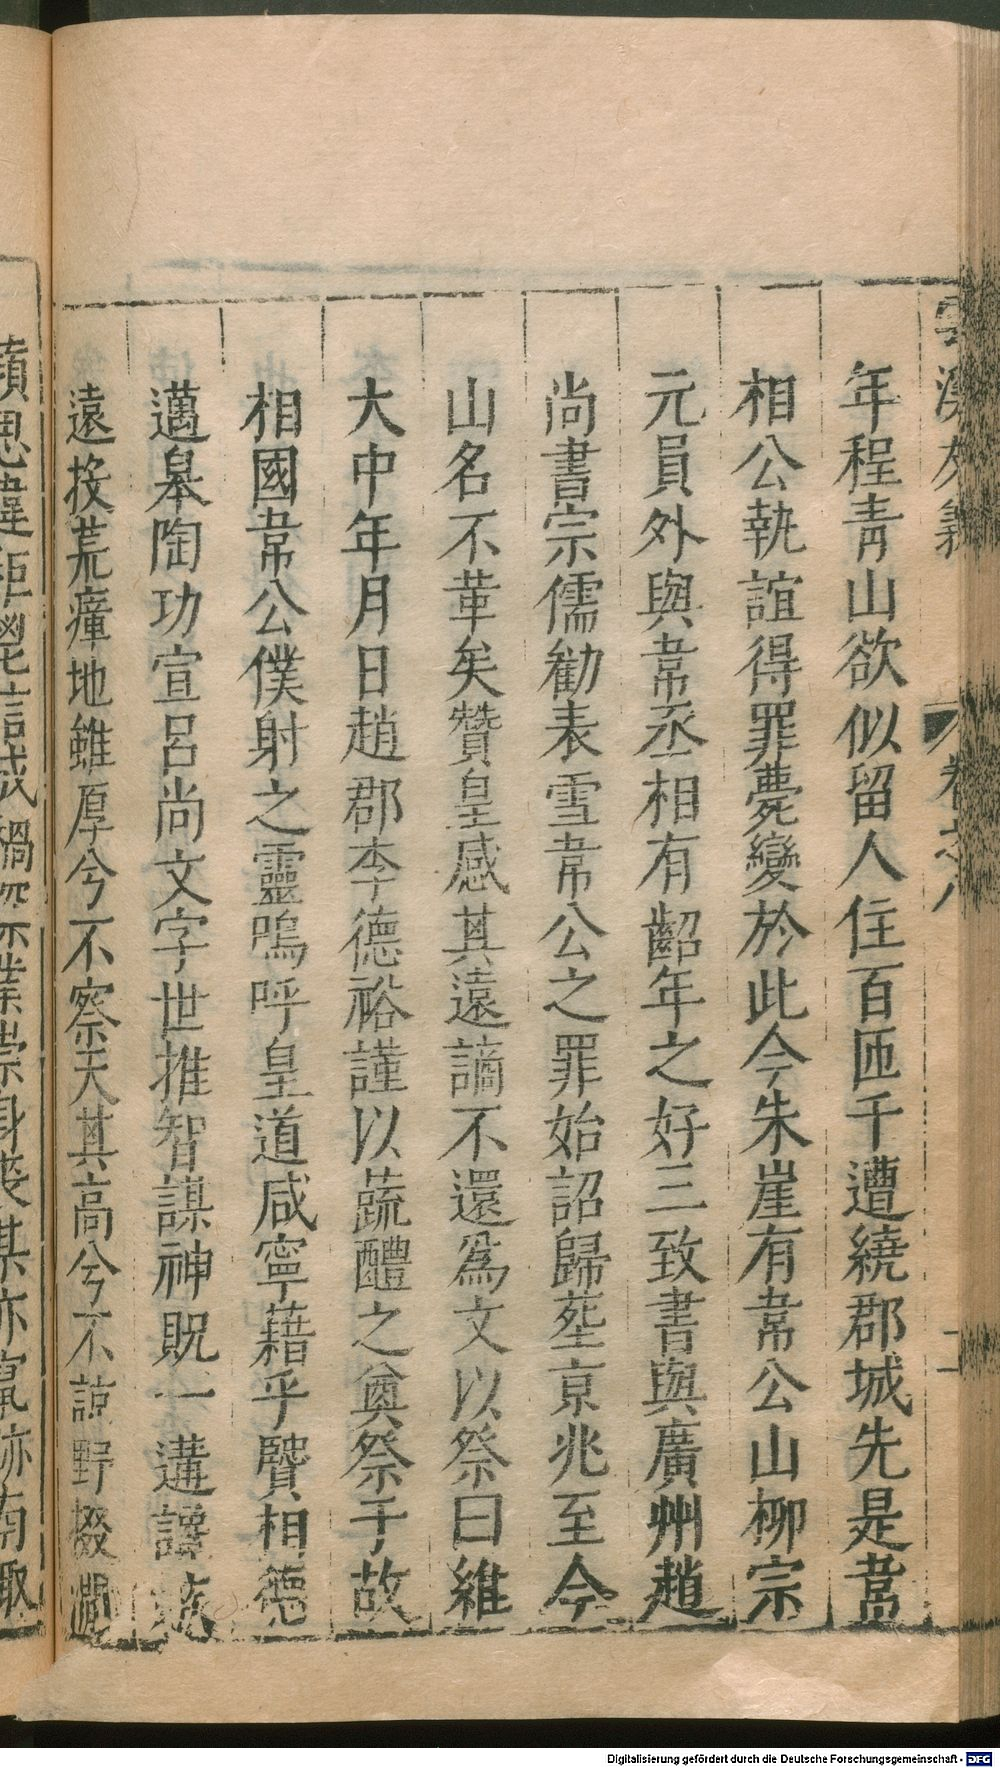 雲溪友議 卷之八 二
年程青山欲似留人住百匝千遭繞郡城先是韋
相公執誼得罪薨變於此今朱崖有韋公山柳宗
元員外與韋丞相有齠年之好三致書與廣州趙
尚書宗儒勸表雪韋公之罪始詔歸塟京兆至今
山名不革矣贊皇感其遠謫不還為文以祭曰維
大中年月日趙郡李德裕謹以蔬醴之奠祭于故
相國韋公僕射之靈嗚呼皇道咸寧藉乎賢相德
邁皋陶功宣呂尚文字世推智謀神貺一遘讒疾
遠投荒瘴地雖厚兮不察天其高兮不諒野掇澗
Digitalisierung gefördert durch die Deutsche Forschungsgemeinschaft - DFG